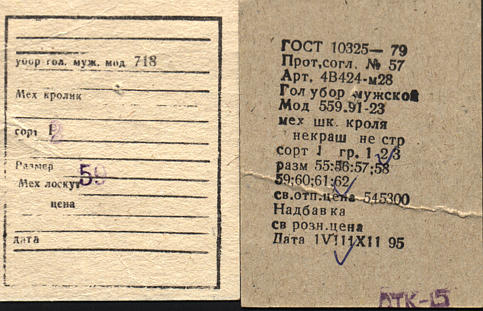 убор гол. муж. мод 718
Мех кролик
сорт 1 2
Размер
59
Мех лоскут
цена
дата
ГОСТ 10325— 79
Прот,согл. № 57
Арт. 4В424-м28
Гол убор мужской
Мод 559.91-23
мех шк. кроля
некраш не стр
сорт 1 гр. 1 2/3
разм 55:56:57;58
59:60:61:62
св.отп.цена 545300
Надбавка
св розн.цена
Дата 1V111X11 95
ОТК-15